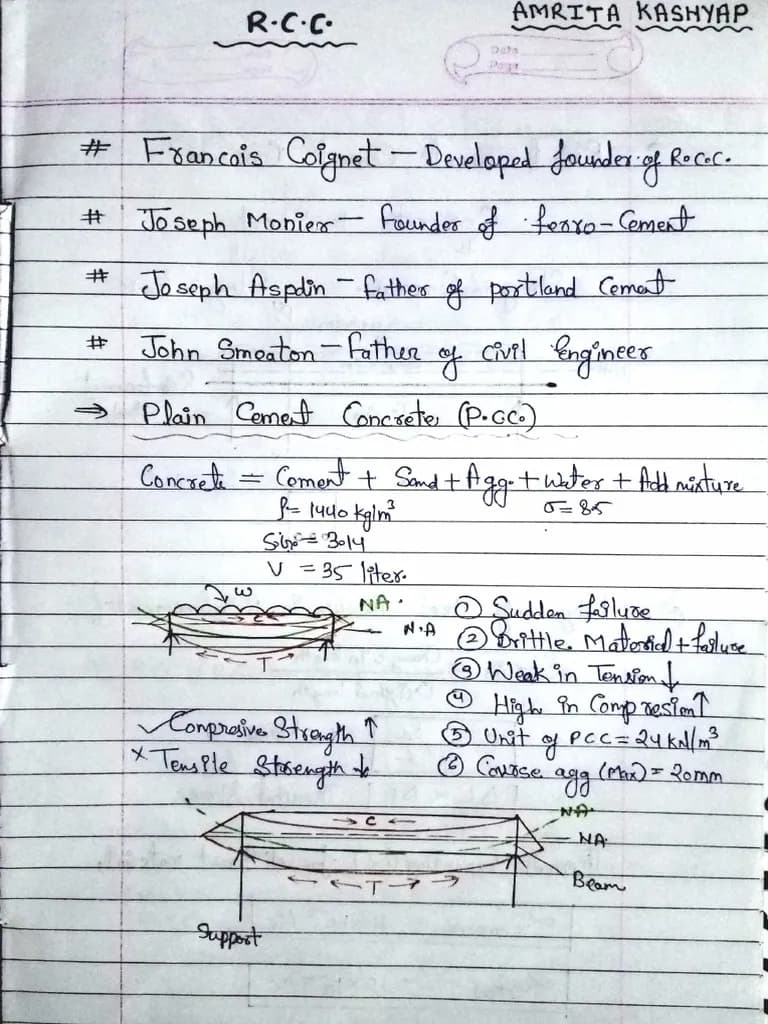 R.C.C.
AMRITA KASHYAP
Date
Page
# Francois Coignet – Developed founder of R.C.C.
# Joseph Monier – founder of ferro-Cement
# Joseph Aspdin – father of portland Cement
# John Smeaton – father of civil Engineer
⇒ Plain Cement Concrete (P.C.C.)
Concrete = Cement + Sand + Agg. + water + Add mixture
ρ = 1440 kg/m³
S.G. = 3.14
V = 35 liter.
w
NA.
C
N.A
T
① Sudden failure
② Brittle Material + failure
③ Weak in Tension ↓
④ High in Compression ↑
⑤ Unit of PCC = 24 kN/m³
⑥ Course agg (Max) = 20mm
✓ Compresive Strength ↑
× Tensile Strength ↓
NA.
→ C ←
NA
← ← T → →
Beam
Support